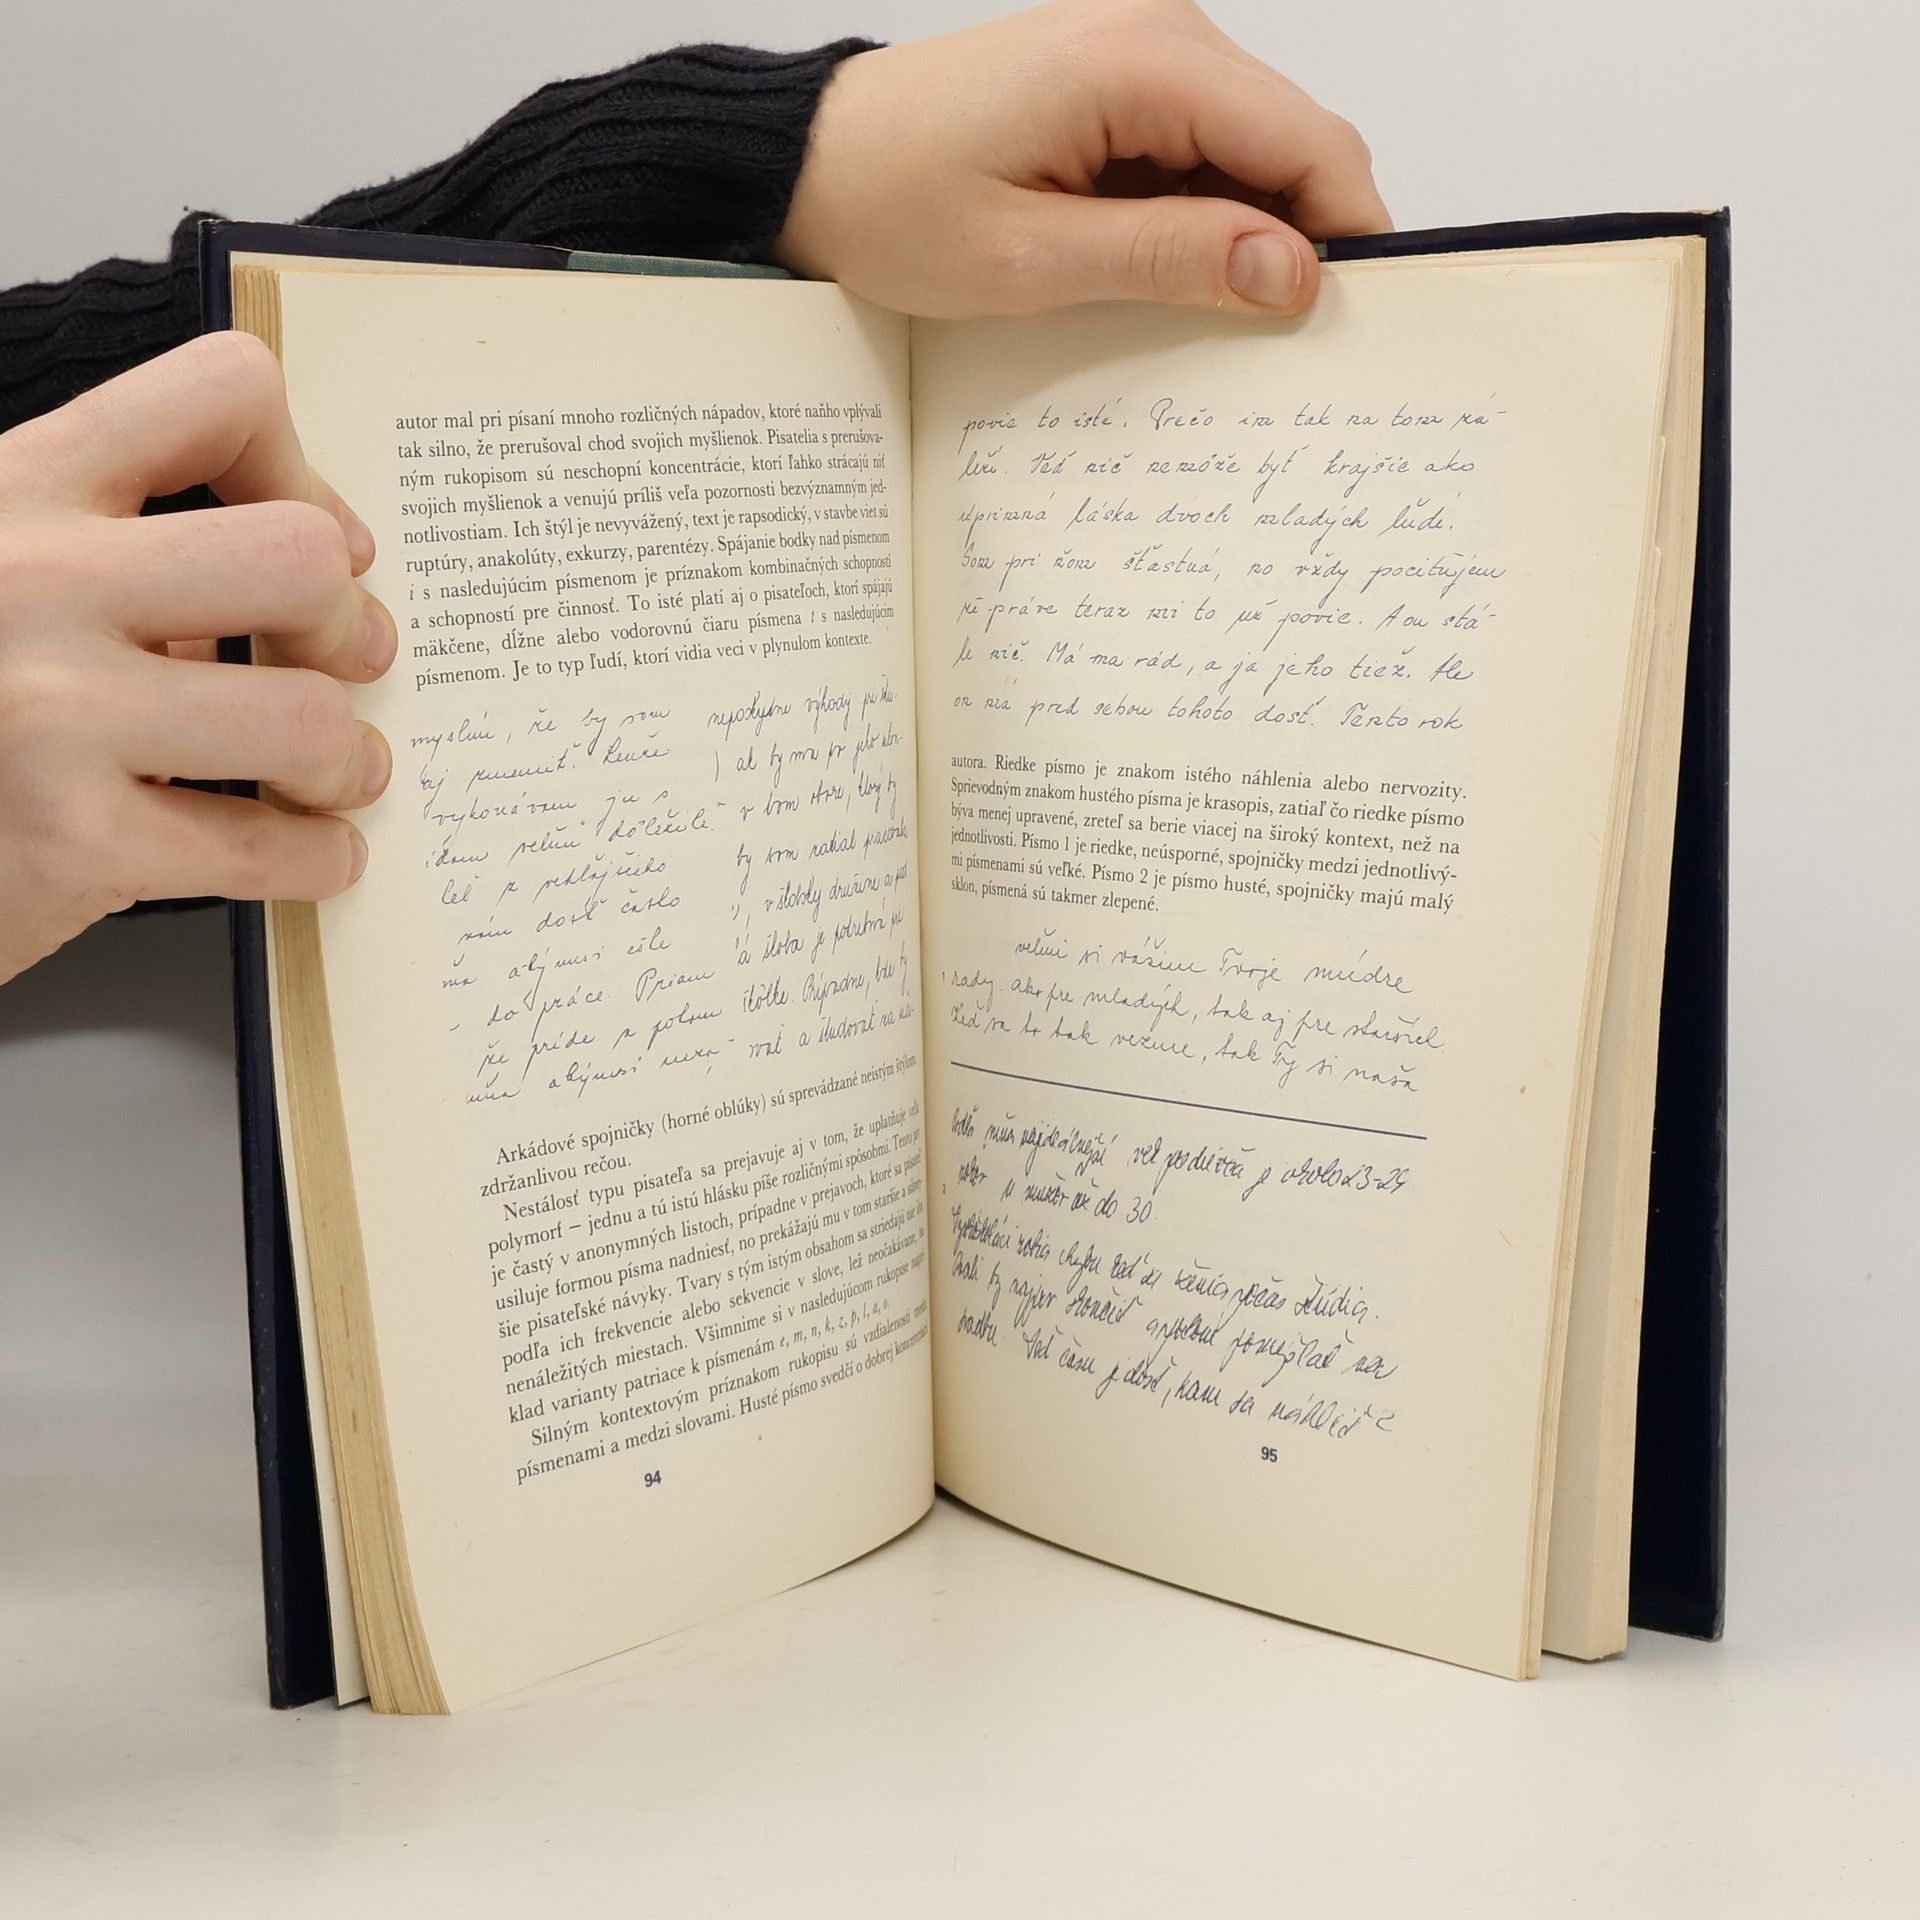 autor mal pri písaní mnoho rozličných nápadov, ktoré naňho vplývali
tak silno, že prerušoval chod svojich myšlienok. Pisatelia s prerušova-
ným rukopisom sú neschopní koncentrácie, ktorí ľahko strácajú niť
svojich myšlienok a venujú príliš veľa pozornosti bezvýznamným jed-
notlivostiam. Ich štýl je nevyvážený, text je rapsodický, v stavbe viet sú
ruptúry, anakolúty, exkurzy, parentézy. Spájanie bodky nad písmenom
i s nasledujúcim písmenom je príznakom kombinačných schopností
a schopností pre činnosť. To isté platí aj o pisateľoch, ktorí spájajú
mäkčene, dĺžne alebo vodorovnú čiaru písmena t s nasledujúcim
písmenom. Je to typ ľudí, ktorí vidia veci v plynulom kontexte.
myslím, že by som
aj zmeniť.
vykonávam ju s
veľmi dôležité.
z vedľajšieho
nám dosť často
ešte
do práce. Priam
že príde a potom
neposkytne výhody pre
ak by ma po jeho
v tom obore, ktorý by
by som začal pracovať
v školskej družine a
škola je potrebná pre
škôlke. Prípadne, kde by
vať a študovať na
Arkádové spojničky (horné oblúky) sú sprevádzané neistým štýlom,
zdržanlivou rečou.
Nestálosť typu pisateľa sa prejavuje aj v tom, že uplatňuje veľa
polymorf – jednu a tú istú hlásku píše rozličnými spôsobmi. Tento jav
je častý v anonymných listoch, prípadne v prejavoch, ktoré sa pisateľ
usiluje formou písma nadniesť, no prekážajú mu v tom staršie a silnej-
šie pisateľské návyky. Tvary s tým istým obsahom sa striedajú nie iba
podľa ich frekvencie alebo sekvencie v slove, lež neočakávane, na
nenáležitých miestach. Všimnime si v nasledujúcom rukopise naprí-
klad varianty patriace k písmenám e, m, n, k, z, p, l, a, o.
Silným kontextovým príznakom rukopisu sú vzdialenosti medzi
písmenami a medzi slovami. Husté písmo svedčí o dobrej koncentrácii
94
povie to isté. Prečo im tak na tom zá-
leží. Veď nič nemôže byť krajšie ako
úprimná láska dvoch mladých ľudí.
Som pri ňom šťastná, no vždy pociťujem
že práve teraz mi to už povie. A on stá-
le nič. Má ma rád, a ja jeho tiež. Ale
on má pred sebou tohoto dosť. Tento rok
autora. Riedke písmo je znakom istého náhlenia alebo nervozity.
Sprievodným znakom hustého písma je krasopis, zatiaľ čo riedke písmo
býva menej upravené, zreteľ sa berie viacej na široký kontext, než na
jednotlivosti. Písmo 1 je riedke, neúsporné, spojničky medzi jednotlivý-
mi písmenami sú veľké. Písmo 2 je písmo husté, spojničky majú malý
sklon, písmená sú takmer zlepené.
veľmi si vážime Tvoje múdre
1 rady. ako pre mladých, tak aj pre starších.
Keď sa to tak vezme, tak Ty si naša
Podľa mňa najideálnejší vek pre dievča je okolo 23-24
rokov u mužov až do 30.
2
Vysokoškoláci robia chybu keď sa ženia počas štúdia.
Mali by najprv skončiť a potom pomýšľať na
svadbu. Veď času je dosť, kam sa náhliť?
95